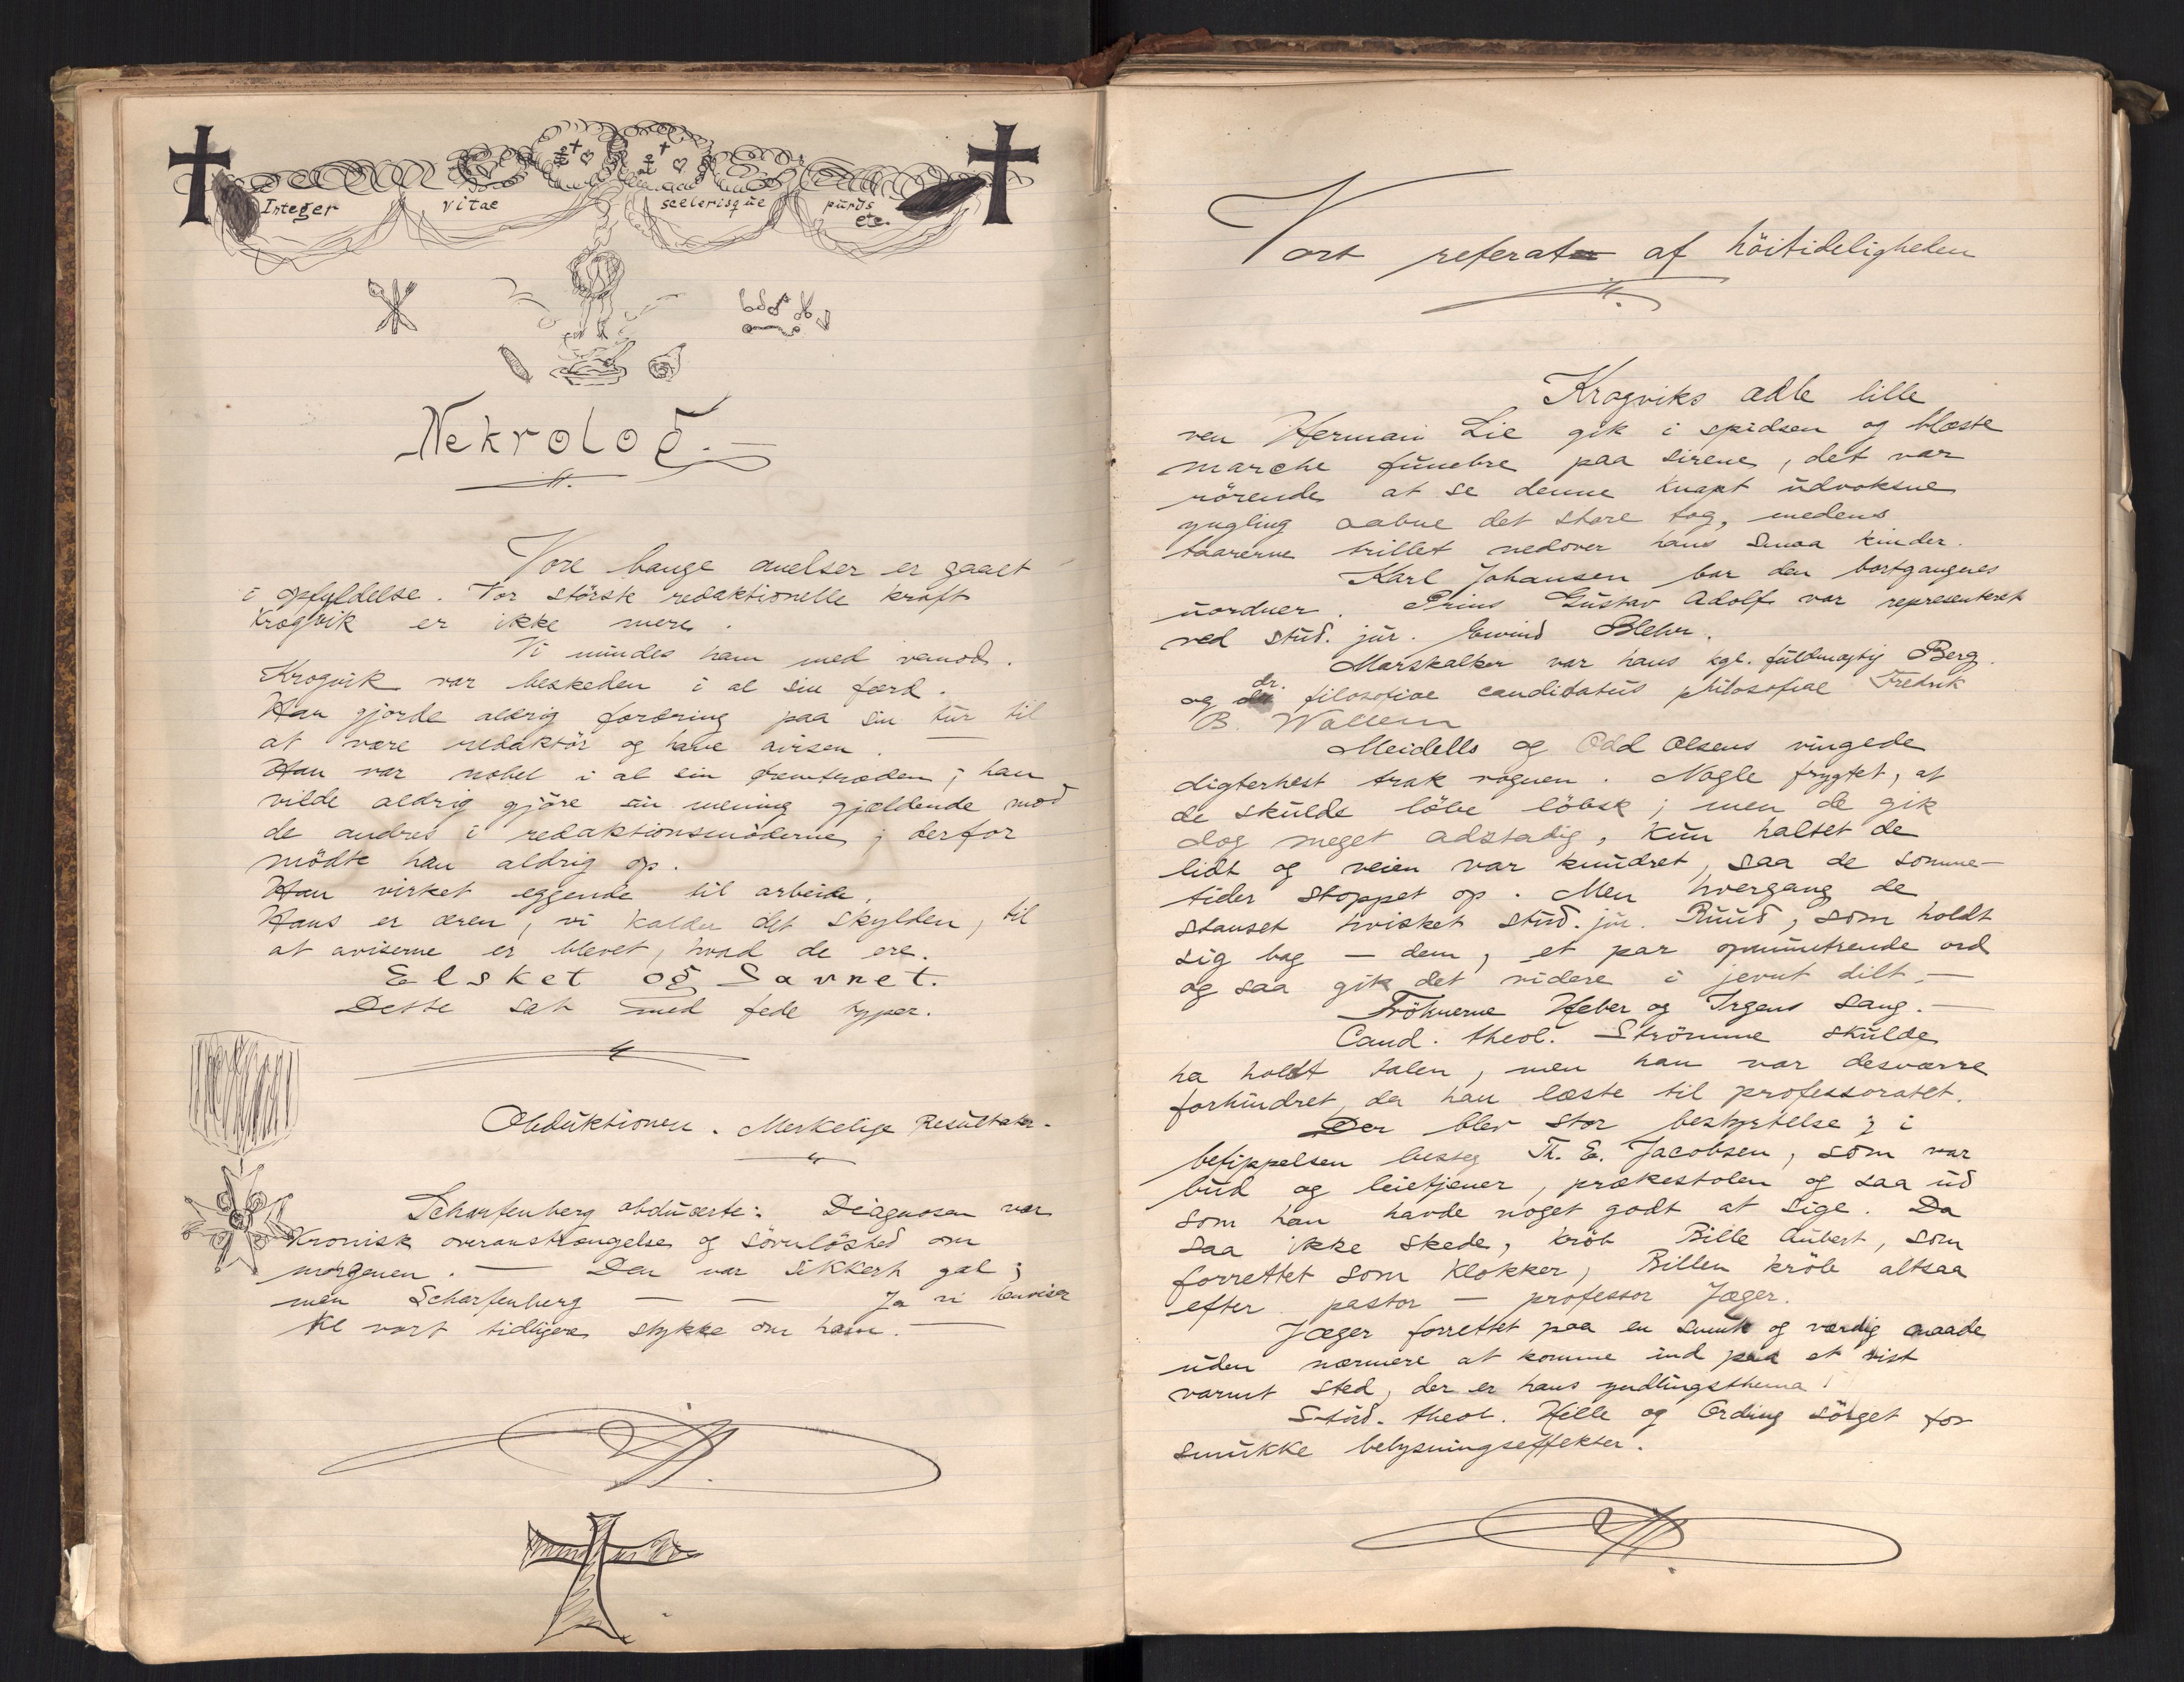 Integer vitae scelerisque purus
etc.
Nekrolog.
Vore bange anelser er gaaet
i opfyldelse. Vor störste redaktionelle kraft
Krogvik er ikke mere.
Vi mindes ham med vemod.
Krogvik var beskeden i al sin færd.
Han gjorde aldrig fordring paa sin tur til
at være redaktör og have avisen.
Han var nobel i al sin fremtræden; han
vilde aldrig gjöre sin mening gjældende mod
de andres i redaktionsmöderne; derfor
mödte han aldrig op.
Han virket eggende til arbeide.
Hans er æren, vi kalder det skylden, til
at aviserne er blevet, hvad de ere.
Elsket og Savnet.
Dette sat med fede typer.
Obduktionen. Merkelige Resultater.
Scharfenberg obducerte: Diagnosen var
Kronisk overanstrængelse og sövnlöshed om
morgenen. — Den var sikkert gal;
men Scharfenberg — — Ja vi henviser
til vort tidligere stykke om ham. —
Vort referat af höitideligheden
Krogviks ædle lille
ven Herman Lie gik i spidsen og blæste
marche funebre paa sirene, det var
rörende at se denne knapt udvoksne
yngling aabne det store tog, medens
taarerne trillet nedover hans smaa kinder.
Karl Johansen bar den bortgangnes
uordner. Prins Gustav Adolf var representeret
ved stud. jur. Eivind Blehr.
Marskalker var hans kgl. fuldmægtig Berg
og dr. filosofiae candidatus philosofiae Fredrik
B. Wallem
Meidells og Odd Olsens vingede
digterhest trak vognen. Nogle frygtet, at
de skulde löbe löbsk; men de gik
dog meget adstadig, kun haltet de
lidt og veien var knudret, saa de somme-
tider stoppet op. Men hvergang de
stanset hvisket stud. jur. Ruud, som holdt
sig bag — dem, et par opmuntrende ord
og saa gik det videre i jevnt dilt. —
Fröknerne Heber og Irgens sang. —
Cand. theol. Strömme skulde
ha holdt talen, men han var desværre
forhindret, da han læste til professoratet.
Der blev stor bestyrtelse; i
befippelsen besteg Th. E. Jacobsen, som var
bud og leietjener, prækestolen og saa ud
som han havde noget godt at sige. Da
saa ikke skede, kröb Bille Aubert, som
forrettet som klokker, Billen kröb altsaa
efter pastor — professor Jæger.
Jæger forrettet paa en smuk og værdig maade
uden nærmere at komme ind paa et vist
varmt sted, der er hans yndlingsthema!
Stud. theol. Hille og Ording sörget for
smukke belysningseffekter.